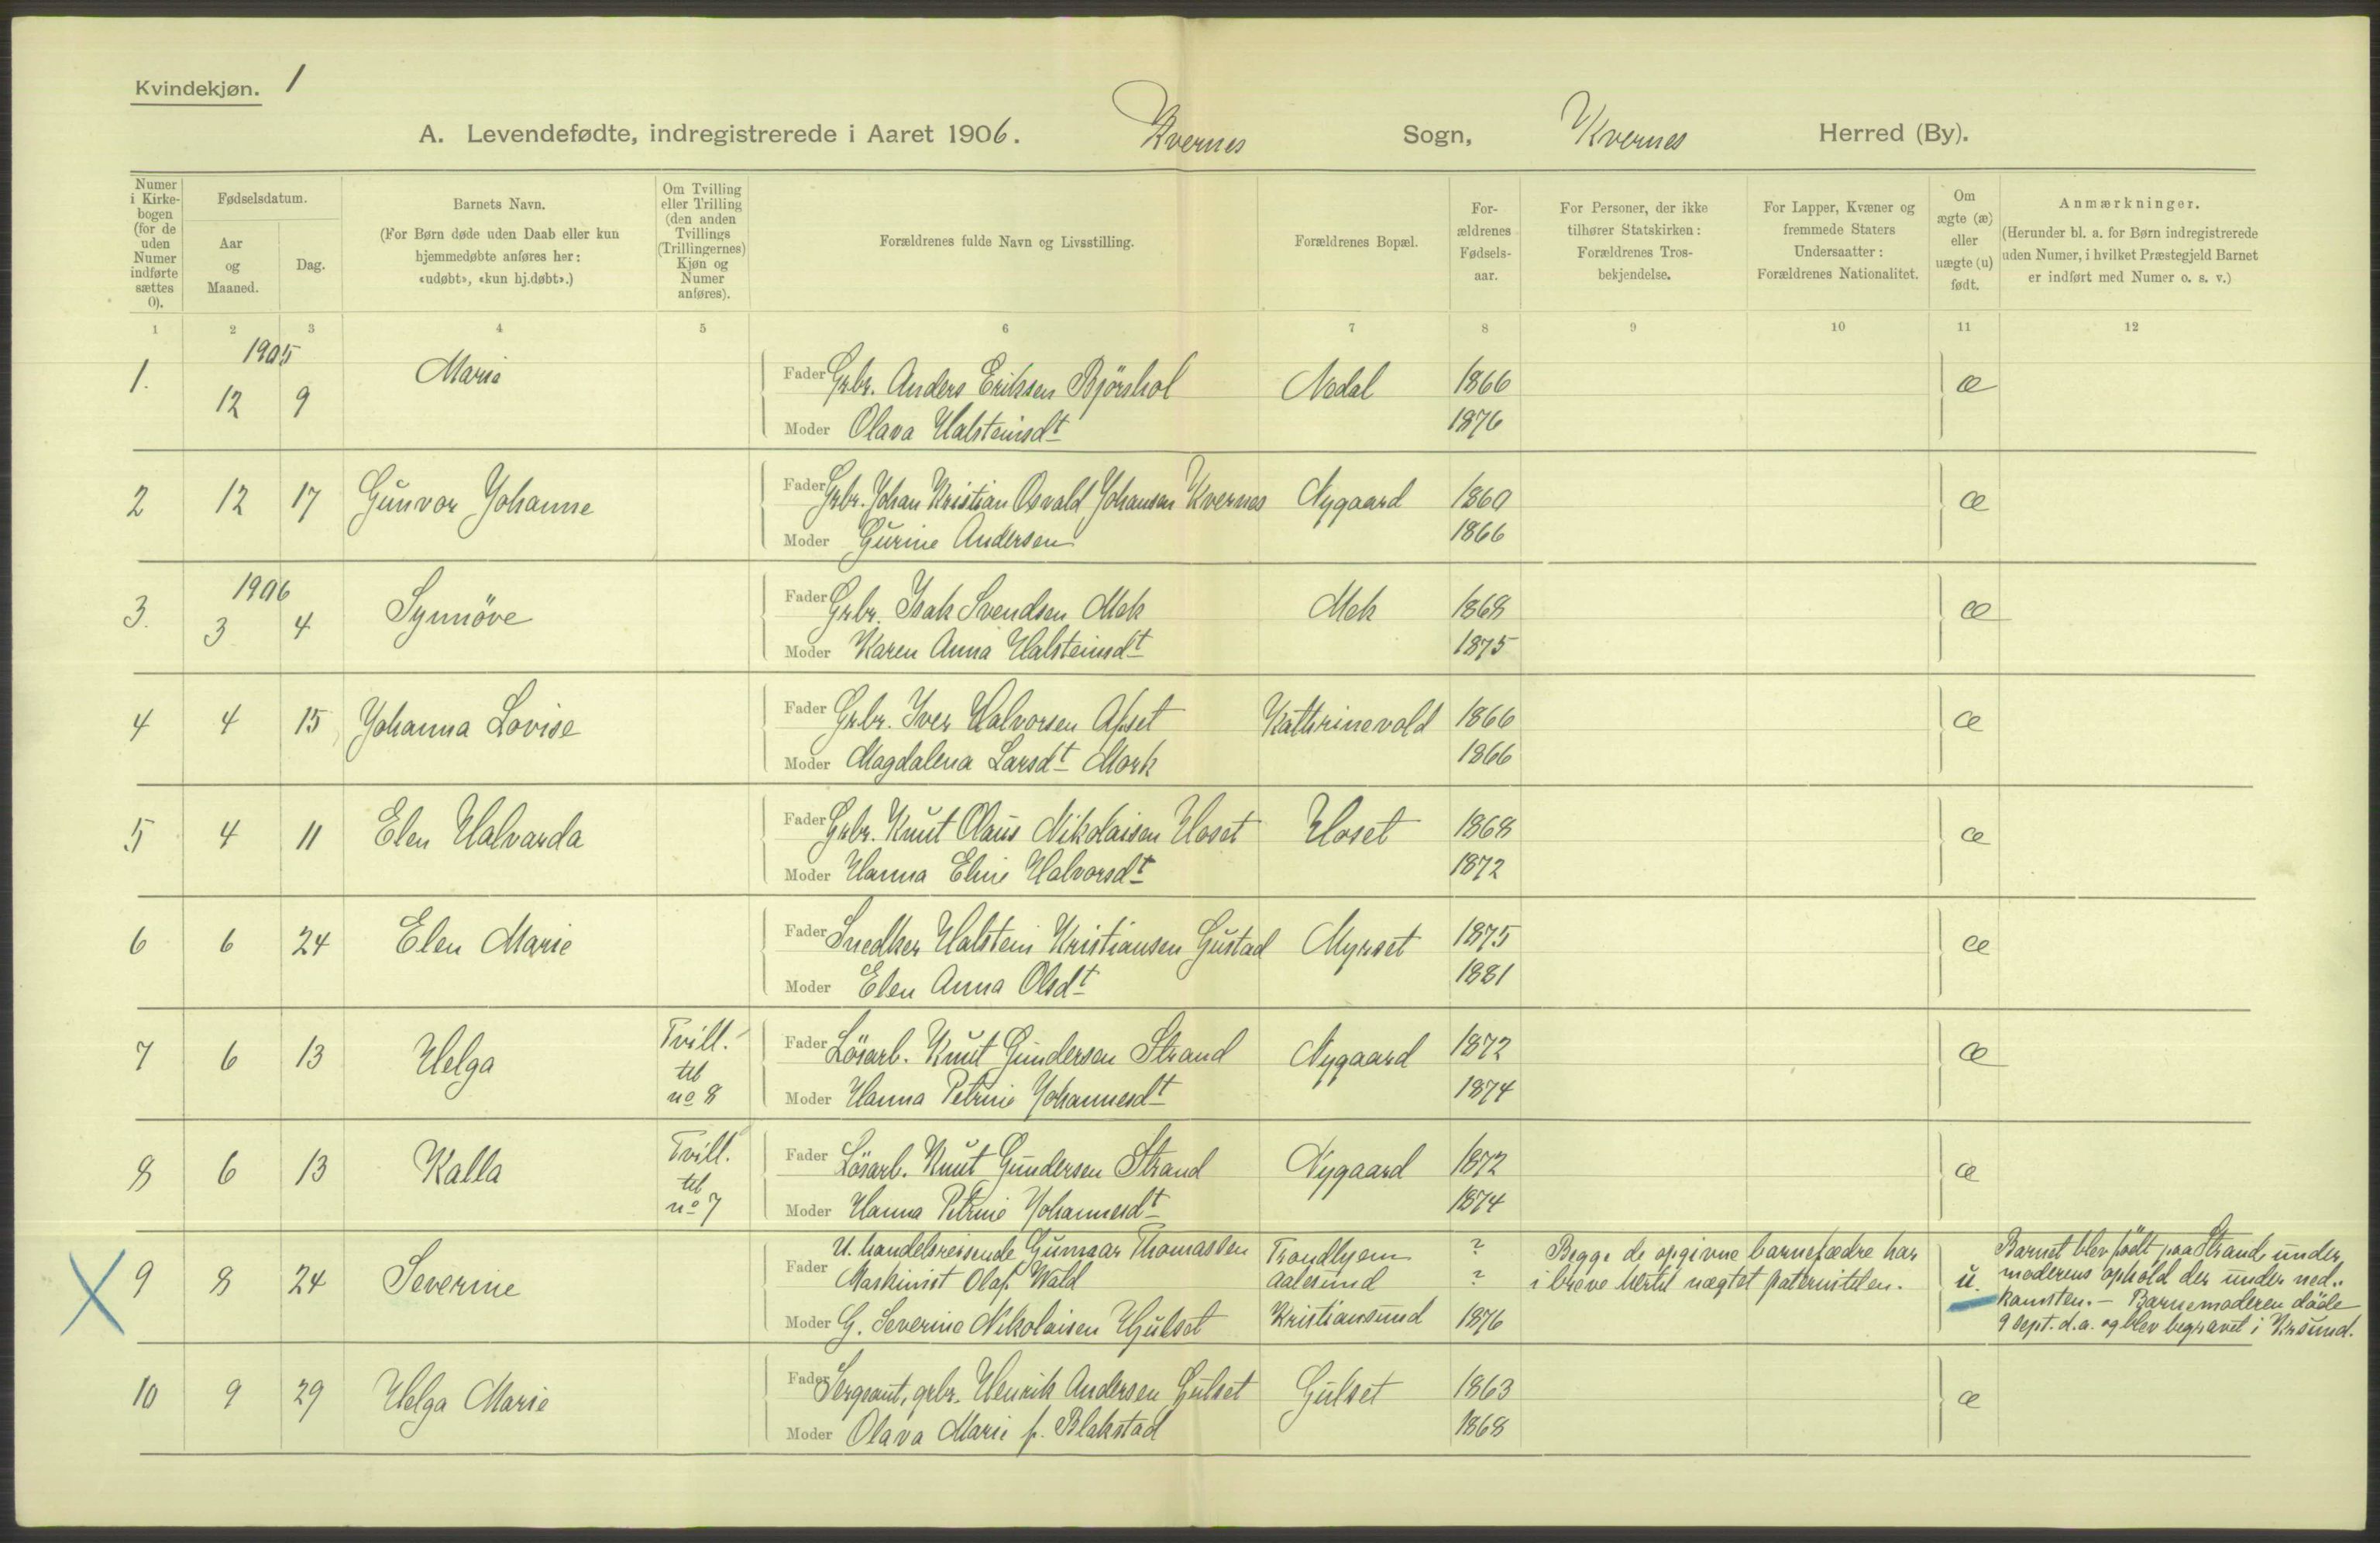 Kvindekjøn. 1
A. Levendefødte, indregistrerede i Aaret 1906. Kvernes Sogn, Kvernes Herred (By).
Numer i Kirkebogen (for de uden Numer indførte sættes 0).
Fødselsdatum.
Aar og Maaned.
Dag.
Barnets Navn.
(For Børn døde uden Daab eller kun hjemmedøbte anføres her: «udøbt», «kun hj.døbt».)
Om Tvilling eller Trilling (den anden Tvillings (Trillingernes) Kjøn og Numer anføres).
Forældrenes fulde Navn og Livsstilling.
Forældrenes Bopæl.
For-ældrenes Fødsels-aar.
For Personer, der ikke tilhører Statskirken: Forældrenes Tros-bekjendelse.
For Lapper, Kvæner og fremmede Staters Undersaatter: Forældrenes Nationalitet.
Om ægte (æ) eller uægte (u) født.
Anmærkninger.
(Herunder bl. a. for Børn indregistrerede uden Numer, i hvilket Præstegjeld Barnet er indført med Numer o. s. v.)
1 2 3 4 5 6 7 8 9 10 11 12
1905
1. 12 9 Marie Fader Grbr. Anders Eriksen Bjørshol Nodal 1866 æ
Moder Olava Halsteinsdt 1876
2 12 17 Gunvor Johanne Fader Grbr. Johan Kristian Osvald Johansen Kvernes Nygaard 1860 æ
Moder Gurine Andersen 1866
1906
3. 3 4 Synnöve Fader Grbr. Isak Svendsen Mek Mek 1868 æ
Moder Karen Anna Halsteinsdt 1875
4 4 15 Johanna Lovise Fader Grbr. Iver Halvorsen Apset Kathrinevold 1866 æ
Moder Magdalena Larsdt Mork 1866
5 4 11 Elen Halvarda Fader Grbr. Knut Olaus Nikolaisen Hoset Hoset 1868 æ
Moder Hanna Eline Halvorsdt 1872
6 6 24 Elen Marie Fader Snedker Halstein Kristiansen Gustad Myrset 1875 æ
Moder Elen Anna Olsdt 1881
7 6 13 Helga Tvill. til no 8 Fader Lösarb. Knut Gundersen Strand Nygaard 1872 æ
Moder Hanna Petrine Johannesdt 1874
8 6 13 Kalla Tvill. til no 7 Fader Lösarb. Knut Gundersen Strand Nygaard 1872 æ
Moder Hanna Petrine Johannesdt 1874
9 8 24 Severine Fader U. handelsreisende Gunnar Thomassen Trondhjem ? Begge de opgivne barnefædre har u. Barnet blev født paa Strand under
Maskinist Olaf Wald Aalesund ? i breve hertil nægtet paterniteten. moderens ophold der under ned-
Moder G. Severine Nikolaisen Gulset Kristiansund 1876 komsten. – Barnemoderen døde
9 sept. d.a. og blev begravet i Krsund.
10 9 29 Helga Marie Fader Sergeant, grbr. Henrik Andersen Gulset Gulset 1863 æ
Moder Olava Marie f. Blakstad 1868